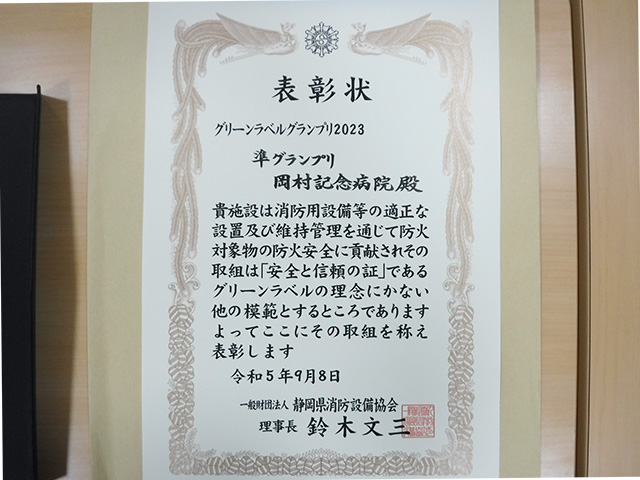 表彰状
グリーンラベルグランプリ2023
準グランプリ
岡村記念病院殿
貴施設は消防用設備等の適正な
設置及び維持管理を通じて防火
対象物の防火安全に貢献されその
取組は「安全と信頼の証」である
グリーンラベルの理念にかない
他の模範とするところであります
よってここにその取組を称え
表彰します
令和5年9月8日
一般財団法人 静岡県消防設備協会
理事長 鈴木文三